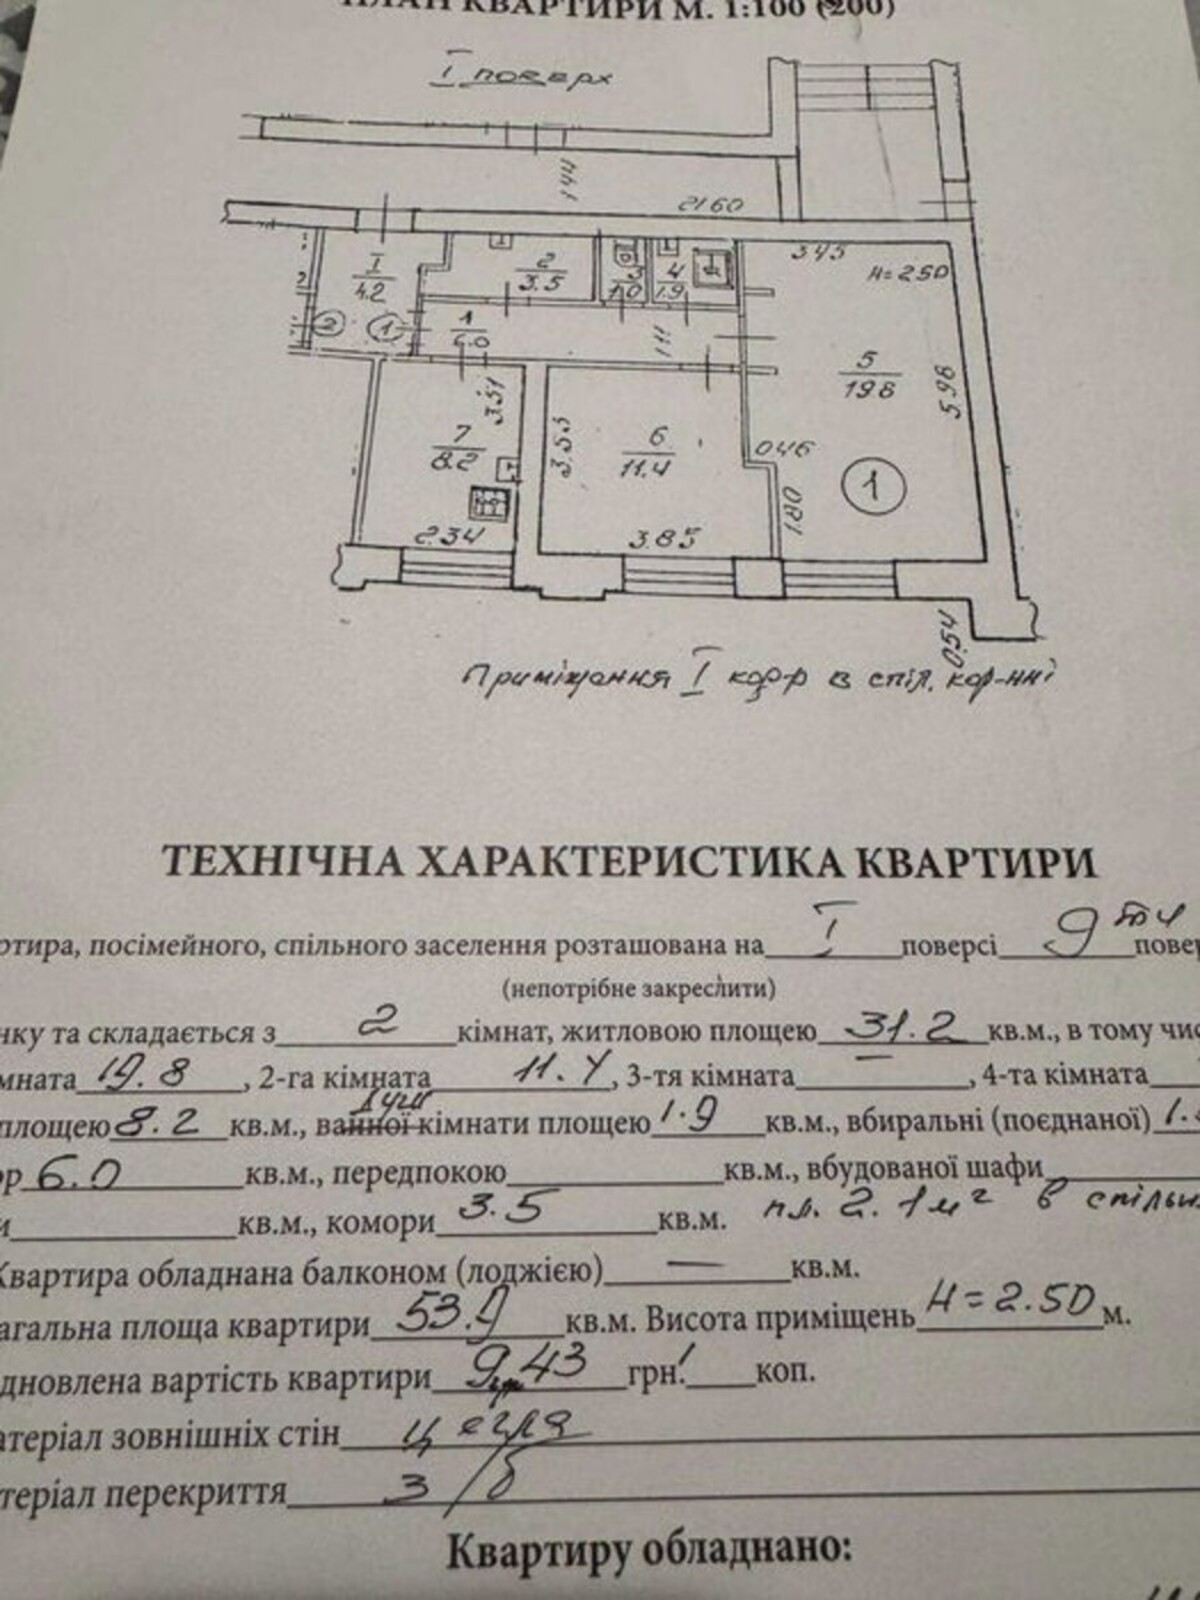 ПЛАН КВАРТИРИ М. 1:100 (200)
I поверх
144
2160
345
H=2.50
I
4.2
2
3.5
3
1.0
4
1.9
2
1
1
6.0
111
5
19.8
5.98
3.51
7
8.2
3.53
6
11.4
046
1
1.80
2.34
3.85
0.54
Приміщення I кор-р в спіл. кор-нні
ТЕХНІЧНА ХАРАКТЕРИСТИКА КВАРТИРИ
ртира, посімейного, спільного заселення розташована на I поверсі 9ти повер
(непотрібне закреслити)
нку та складається з 2 кімнат, житловою площею 31.2 кв.м., в тому чис
мната 19.8, 2-га кімната 11.4, 3-тя кімната —, 4-та кімната
душ
площею 8.2 кв.м., ванної кімнати площею 1.9 кв.м., вбиральні (поєднаної) 1.
ор 6.0 кв.м., передпокою кв.м., вбудованої шафи
и кв.м., комори 3.5 кв.м. пл. 2.1м² в спільн
Квартира обладнана балконом (лоджією) — кв.м.
агальна площа квартири 53.9 кв.м. Висота приміщень H=2.50 м.
дновлена вартість квартири 9 43 грн. коп.
атеріал зовнішніх стін цегла
теріал перекриття з/б
Квартиру обладнано: